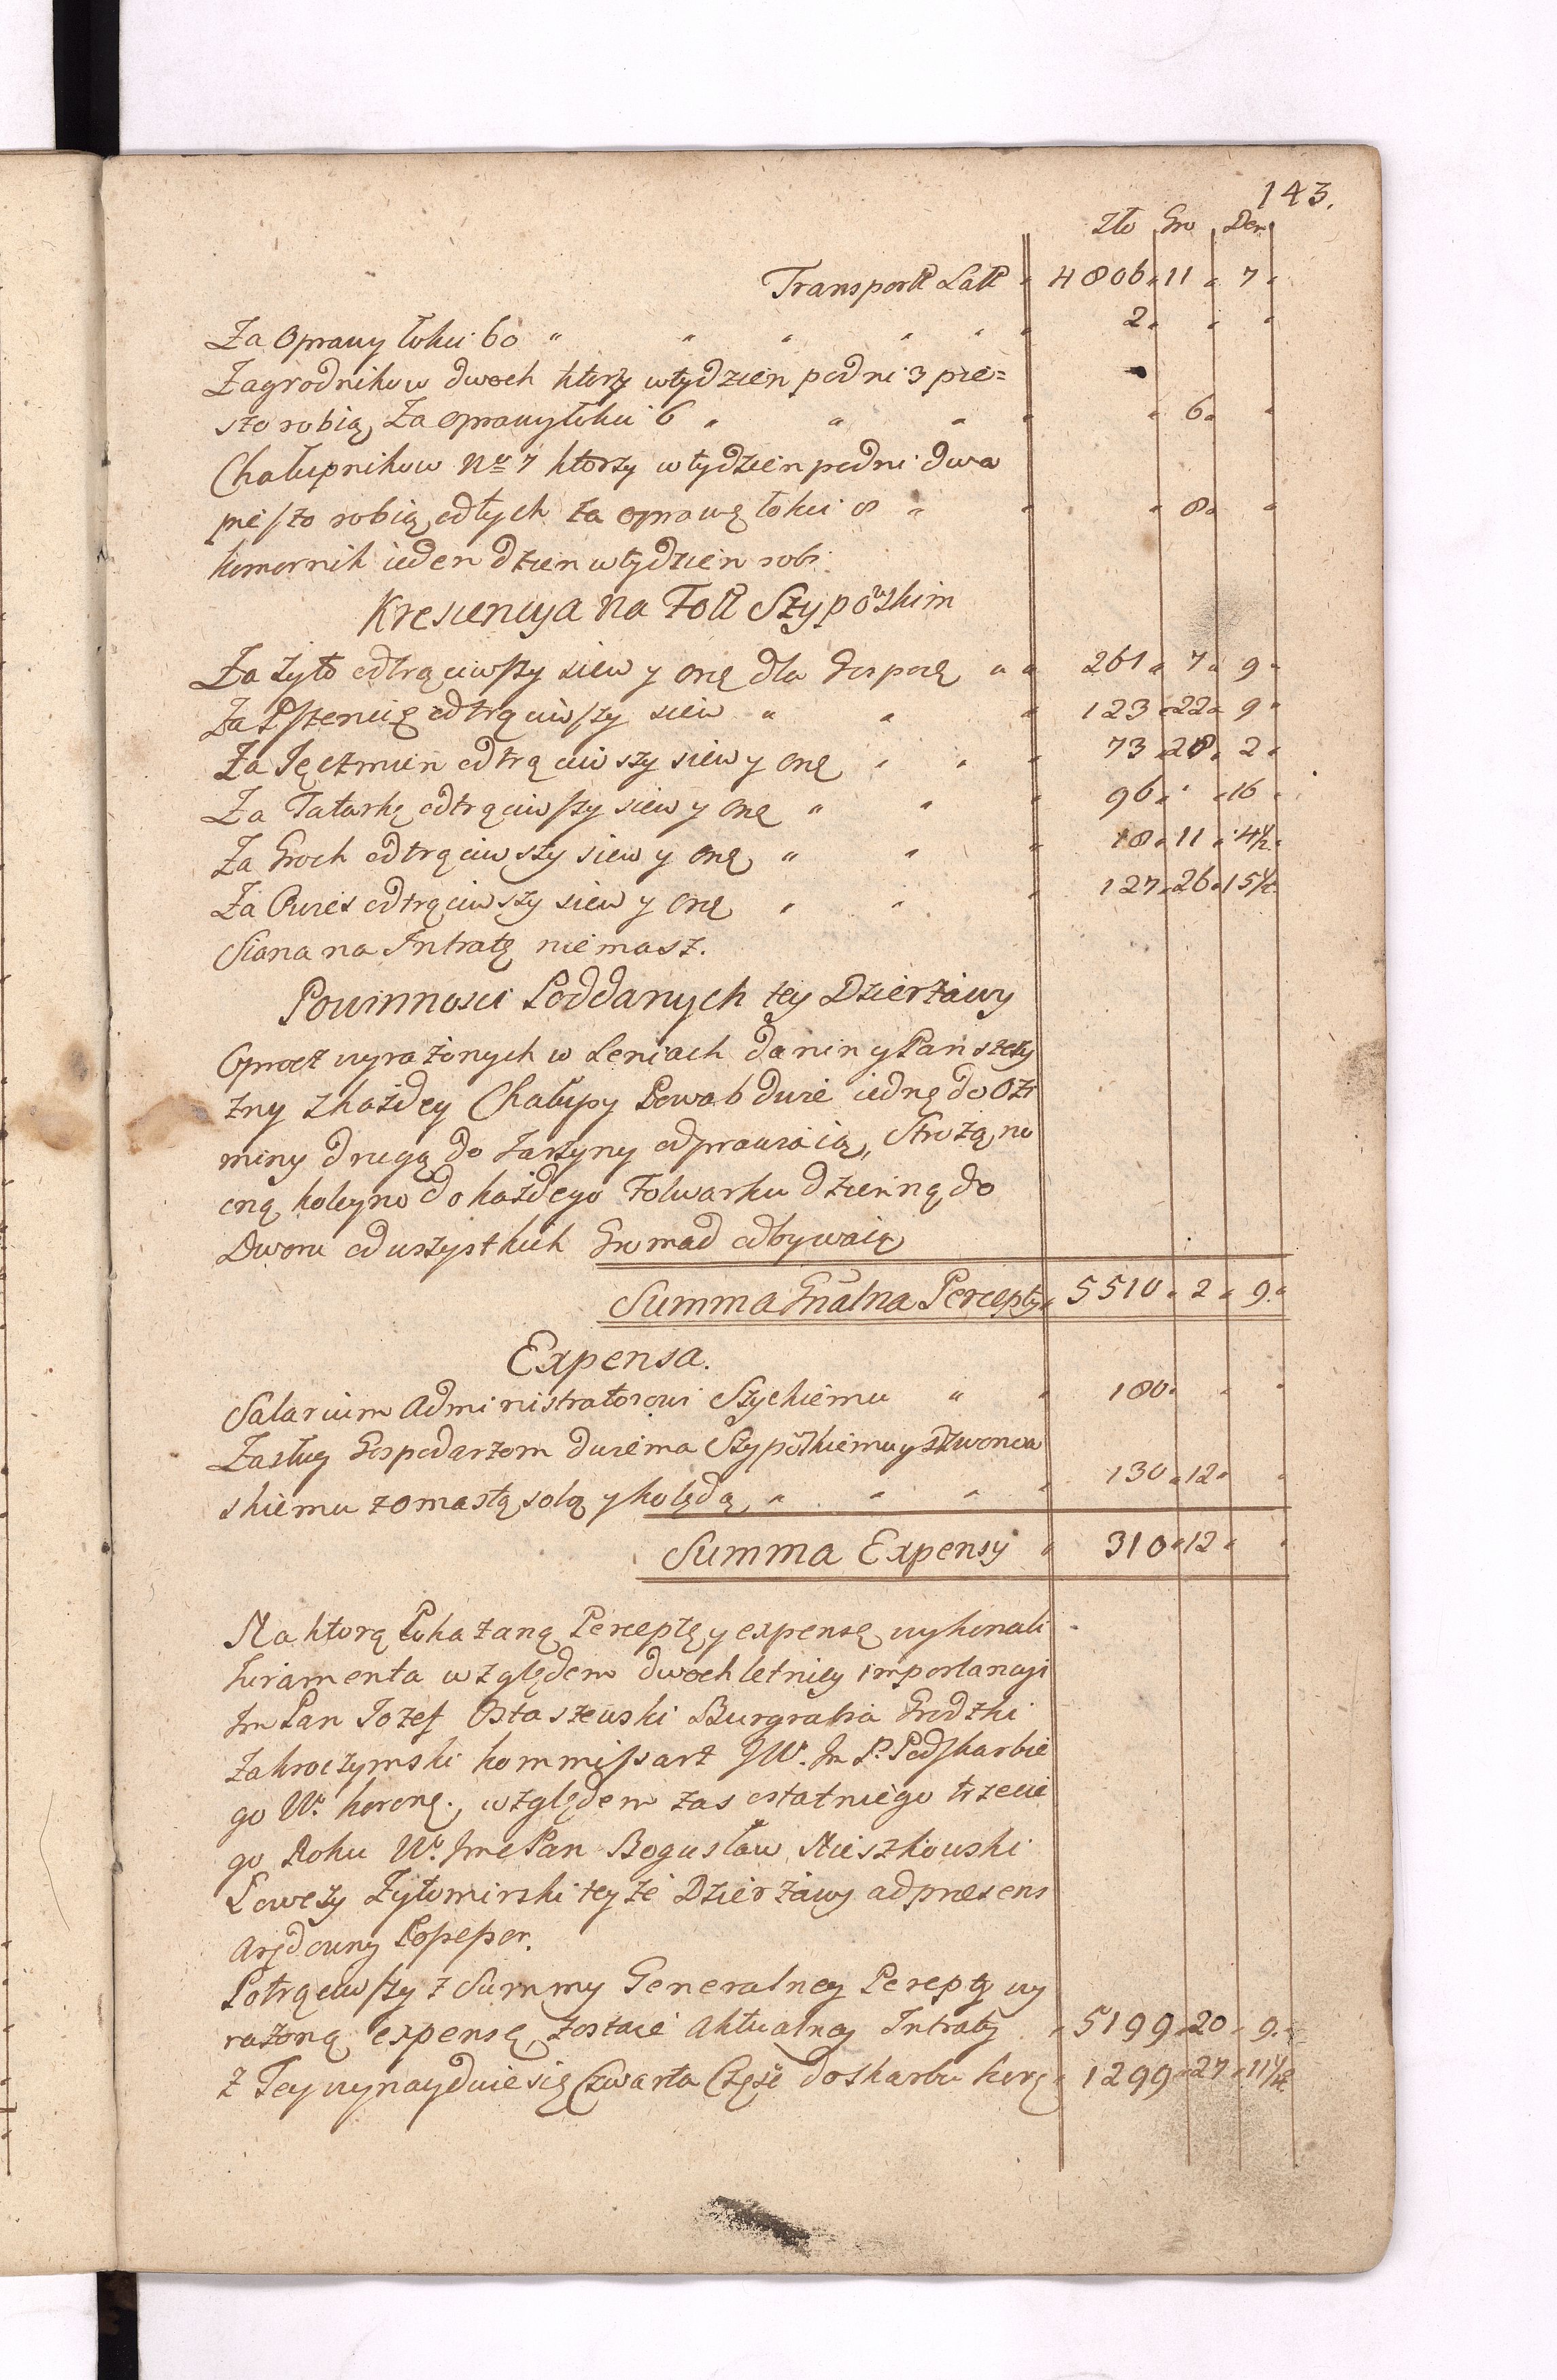 143.
Zło Gro Den
Transport Latt 4806 11 7
Za Oprawy łokci 60 2
Zagrodnikow dwoch ktorzy w tydzien po dni 3 pie=
szo robią, Za oprawy łokci 6 6
Chałupnikow No 7 ktorzy w tydzien po dni dwa
pieszo robią, od tych za oprawę łokci 8 8
komornik ieden dzien w tydzien robi.
Krescencya na Foll Szypowskim
Za Żyto odtrąciwszy siew y onę dla Gospoę 261 7 9
Za Pszenicę odtrąciwszy siew 123 22 9
Za Jęczmien odtrąciwszy siew y onę 73 28 2
Za Tatarkę odtrąciwszy siew y onę 96 16
Za Groch odtrąciwszy siew y onę 18 11 4½
Za Owies odtrąciwszy siew y onę 127 26 15½
Siana na Intratę nie masz.
Powinnosci Poddanych tey Dzierżawy
Oprocz wyrażonych w Leniach danin y Panszczy
zny z każdey Chałupy Powab dwie iednę do Ozi
miny drugą do Jarzyny odprawiaią, Strożą no
cną koleyno do każdego Folwarku dzienną do
Dworu od wszystkich Gromad odbywaią
Summa Gnalna Percepty 5510 2 9
Expensa.
Salarium Administratorowi Szyckiemu 180
Zasług Gospodarzom dwiema Szyposkiemu y Dzwonow
skiemu z omastą solą y kolędą 130 12
Summa Expensy 310 12
Na ktorą Pokazaną Perceptę y expensę wykonali
Juramenta względem dwochletniey importancyi
Jm Pan Jozef Ostaszewski Burgrabia Grodzki
Zakroczymski kommissarz JW. Jm P. Podskarbie
go W. koronę. względem zas ostatniego trzecie
go Roku W. Jmc Pan Bogusław Mieszkowski
Łowczy Żytomirski teyże Dzierżawy ad præsens
Arędowny Possessor.
Potrąciwszy z Summy Generalney Percepty wy
rażoną expensę, zostaie Aktualney Intraty 5199 20 9
Z Tey wynayduie się Czwarta Część do skarbu korę 1299 27 11¼